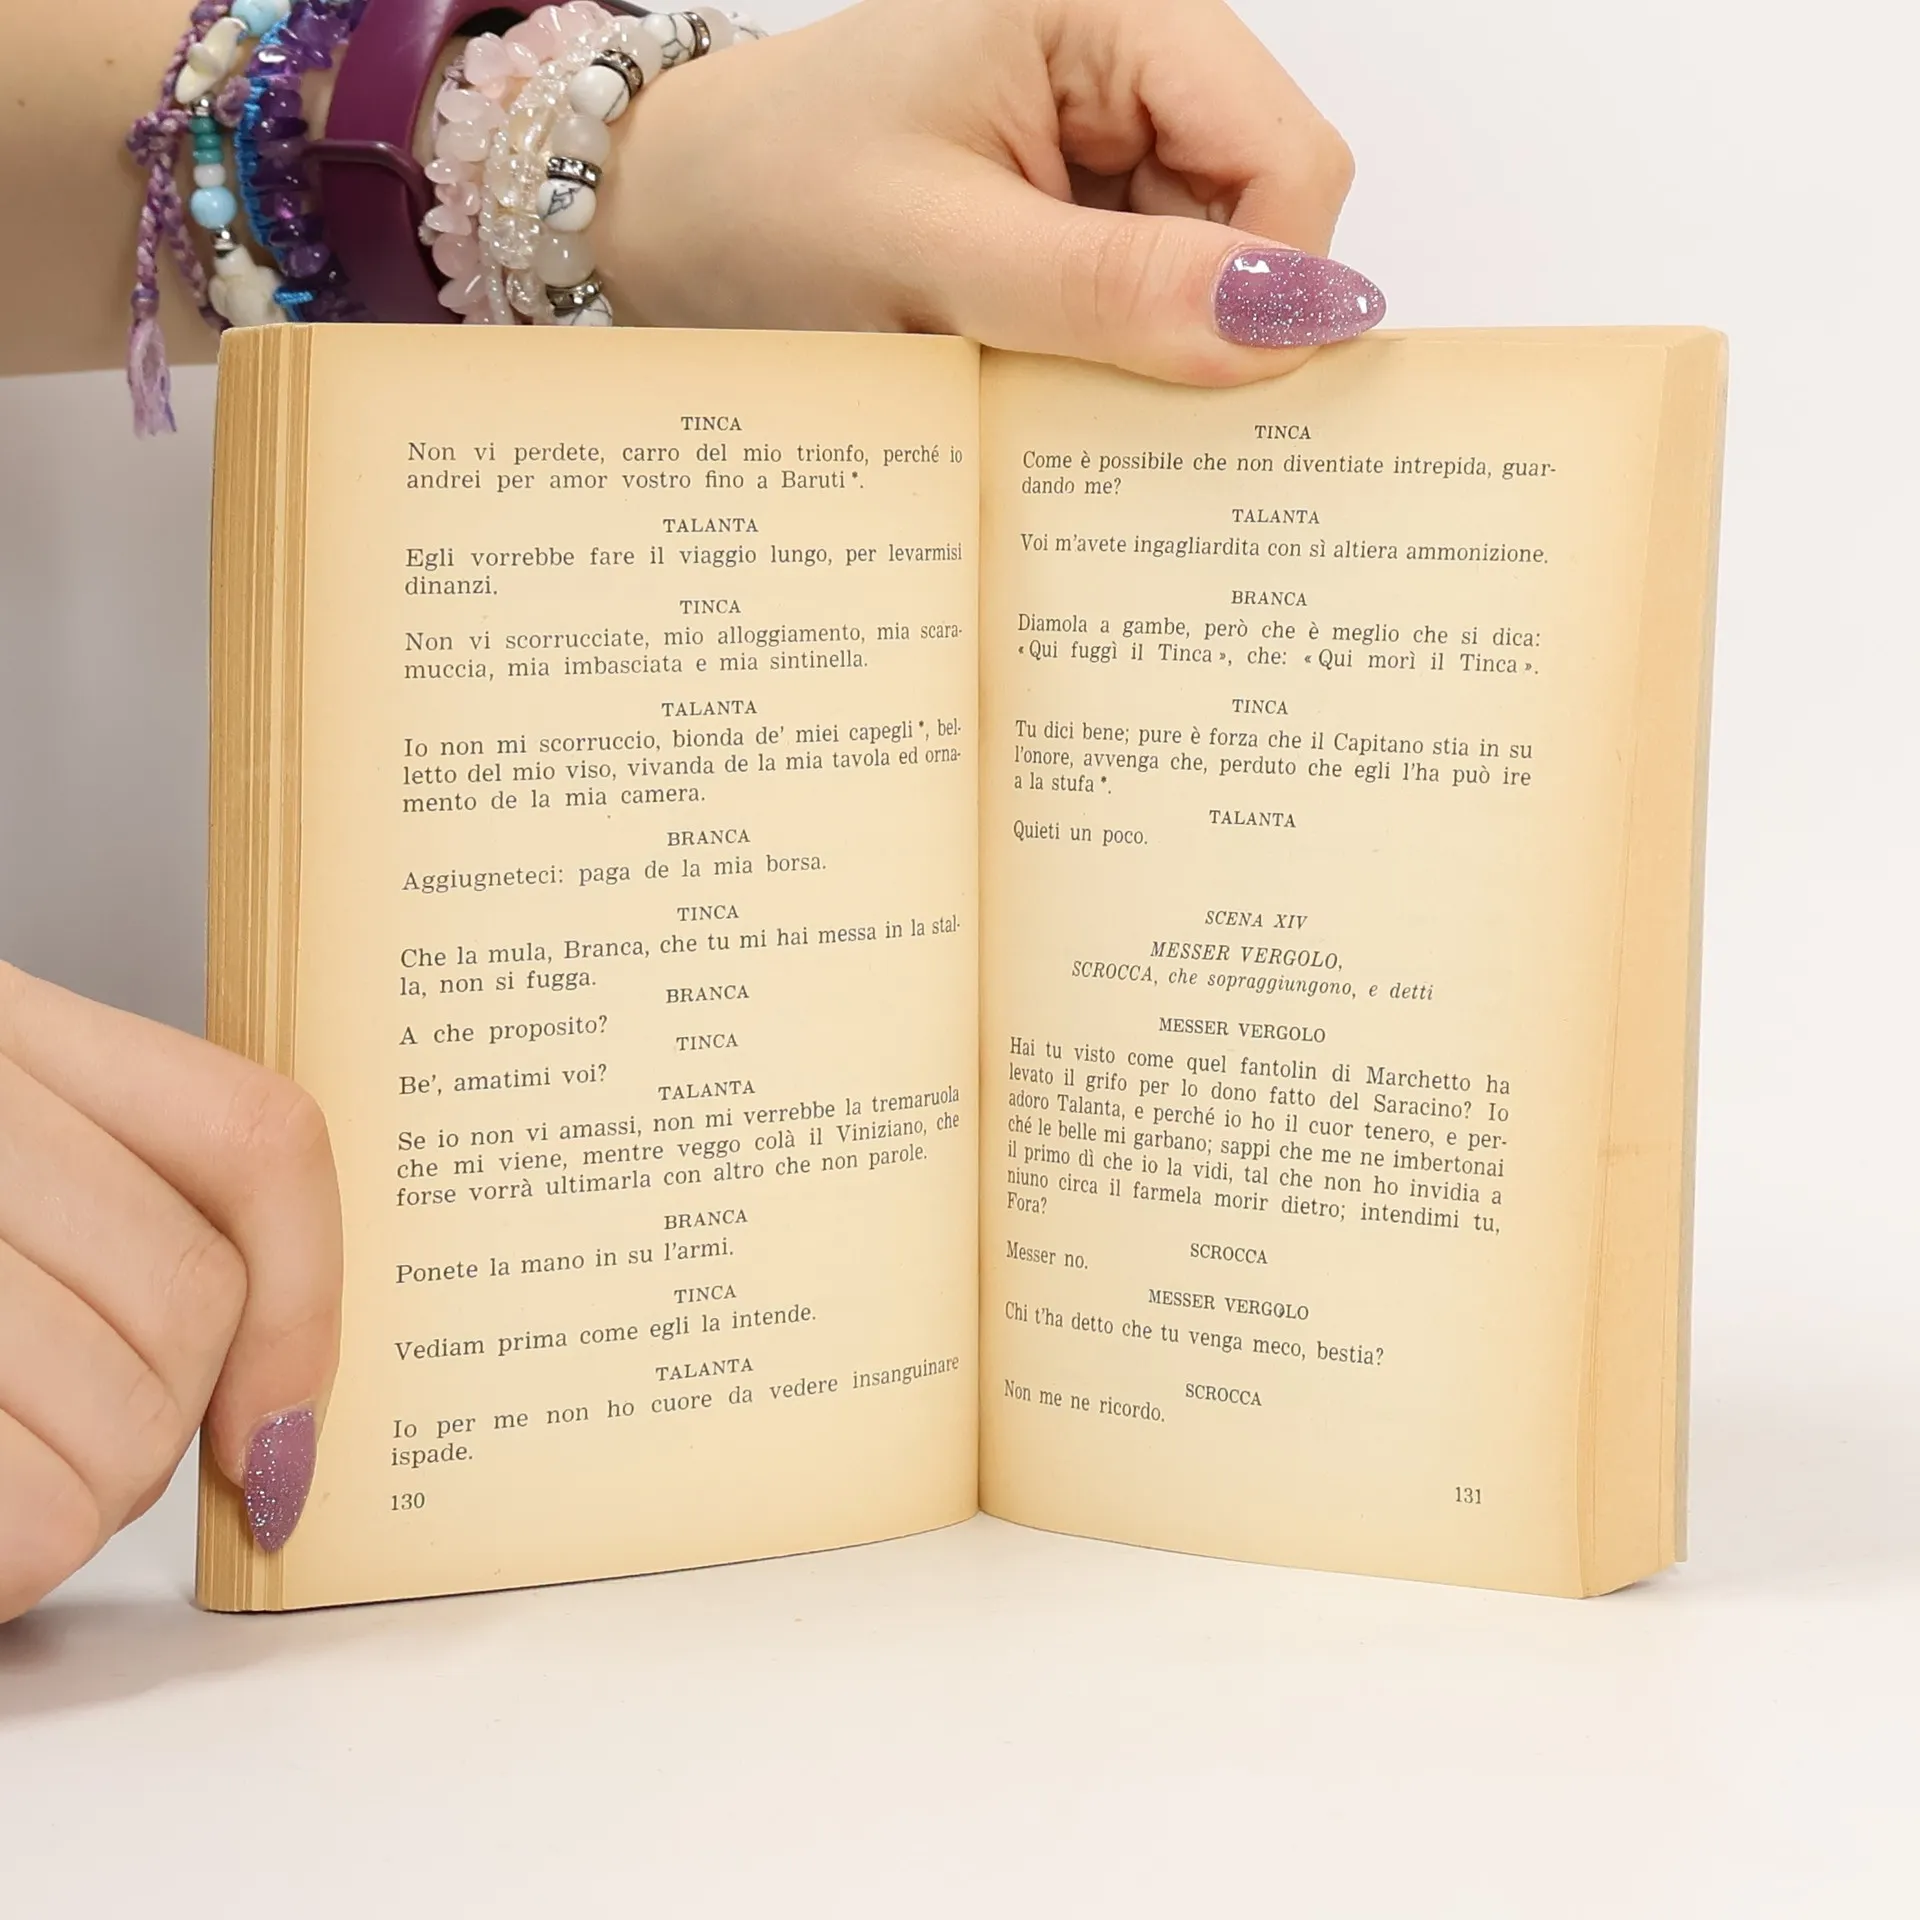 TINCA
Non vi perdete, carro del mio trionfo, perché io
andrei per amor vostro fino a Baruti*.
TALANTA
Egli vorrebbe fare il viaggio lungo, per levarmisi
dinanzi.
TINCA
Non vi scorrucciate, mio alloggiamento, mia scara-
muccia, mia imbasciata e mia sintinella.
TALANTA
Io non mi scorruccio, bionda de' miei capegli*, bel-
letto del mio viso, vivanda de la mia tavola ed orna-
mento de la mia camera.
BRANCA
Aggiugneteci: paga de la mia borsa.
TINCA
Che la mula, Branca, che tu mi hai messa in la stal-
la, non si fugga.
BRANCA
A che proposito?
TINCA
Be', amatimi voi?
TALANTA
Se io non vi amassi, non mi verrebbe la tremaruola
che mi viene, mentre veggo colà il Viniziano, che
forse vorrà ultimarla con altro che non parole.
BRANCA
Ponete la mano in su l'armi.
TINCA
Vediam prima come egli la intende.
TALANTA
Io per me non ho cuore da vedere insanguinare
ispade.
130
TINCA
Come è possibile che non diventiate intrepida, guar-
dando me?
TALANTA
Voi m'avete ingagliardita con sì altiera ammonizione.
BRANCA
Diamola a gambe, però che è meglio che si dica:
«Qui fuggì il Tinca», che: «Qui morì il Tinca».
TINCA
Tu dici bene; pure è forza che il Capitano stia in su
l'onore, avvenga che, perduto che egli l'ha può ire
a la stufa*.
TALANTA
Quieti un poco.
SCENA XIV
MESSER VERGOLO,
SCROCCA, che sopraggiungono, e detti
MESSER VERGOLO
Hai tu visto come quel fantolin di Marchetto ha
levato il grifo per lo dono fatto del Saracino? Io
adoro Talanta, e perché io ho il cuor tenero, e per-
ché le belle mi garbano; sappi che me ne imbertonai
il primo dì che io la vidi, tal che non ho invidia a
niuno circa il farmela morir dietro; intendimi tu,
Fora?
SCROCCA
Messer no.
MESSER VERGOLO
Chi t'ha detto che tu venga meco, bestia?
SCROCCA
Non me ne ricordo.
131